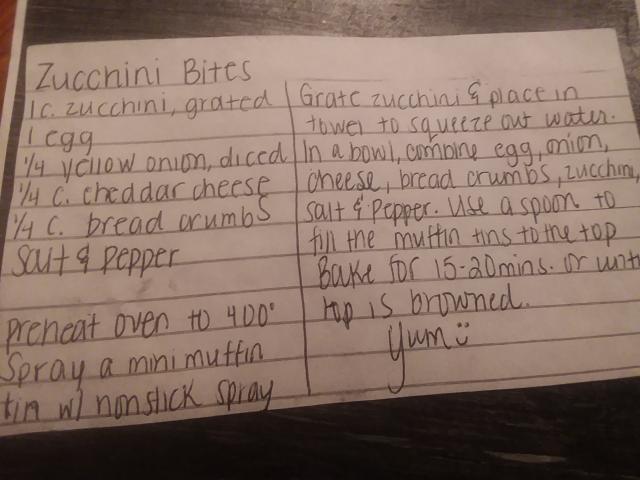 Zucchini Bites
1 c. zucchini, grated
1 egg
1/4 yellow onion, diced
1/4 c. cheddar cheese
1/4 c. bread crumbs
Salt & Pepper
Preheat oven to 400°
Spray a mini muffin
tin w/ nonstick spray
Grate zucchini & place in
towel to squeeze out water.
In a bowl, combine egg, onion,
cheese, bread crumbs, zucchini,
salt & Pepper. Use a spoon to
fill the muffin tins to the top
Bake for 15-20 mins. or until
top is browned.
Yum